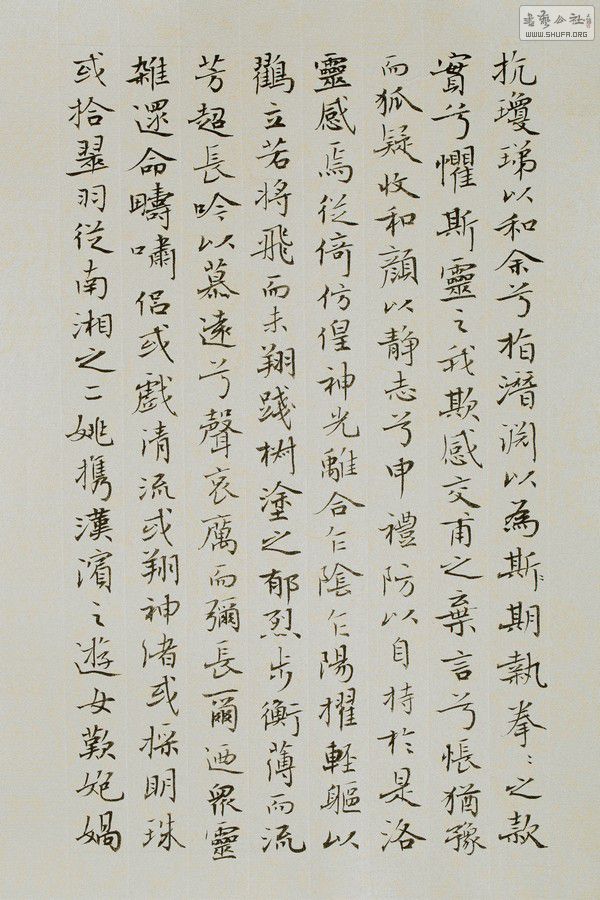 抗瓊珶以和余兮指潛淵以為斯期執拳〻之款
實兮懼斯靈之我欺感交甫之棄言兮悵猶豫
而狐疑收和顏以靜志兮申禮防以自持於是洛
靈感焉從倚仿偟神光離合乍陰乍陽擢輕軀以
鸛立若將飛而未翔踐椒塗之郁烈步蘅薄而流
芳超長吟以慕遠兮聲哀厲而彌長爾迺眾靈
雜遝命疇嘯侶或戲清流或翔神渚或採明珠
或拾翠羽從南湘之二姚攜漢濱之遊女歎匏媧
書藝公社
WWW.SHUFA.ORG